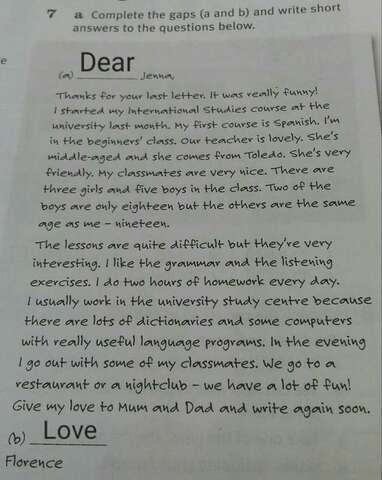 7 a Complete the gaps (a and b) and write short
answers to the questions below.
e
(a) Dear Jenna,
Thanks for your last letter. It was really funny!
I started my International Studies course at the
university last month. My first course is Spanish. I'm
in the beginners' class. Our teacher is lovely. She's
middle-aged and she comes from Toledo. She's very
friendly. My classmates are very nice. There are
three girls and five boys in the class. Two of the
boys are only eighteen but the others are the same
age as me – nineteen.
The lessons are quite difficult but they're very
interesting. I like the grammar and the listening
exercises. I do two hours of homework every day.
I usually work in the university study centre because
there are lots of dictionaries and some computers
with really useful language programs. In the evening
I go out with some of my classmates. We go to a
restaurant or a nightclub – we have a lot of fun!
Give my love to Mum and Dad and write again soon.
(b) Love
Florence